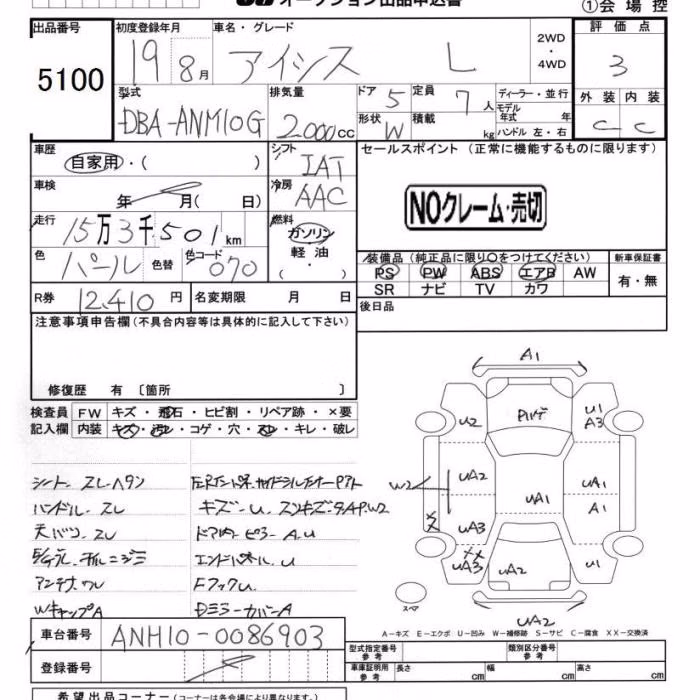 オークション出品申込書
①会場控
出品番号
5100
初度登録年月
19 8月
車名・グレード
アイシス L
2WD
・
4WD
評価点
3
型式
DBA-ANM10G
排気量
2.000cc
ドア 5
定員 7人
形状 W
積載 kg
ディーラー・並行
モデル年式 年
ハンドル 左・右
外装 内装
C C
車歴
自家用・( )
シフト
IAT
車検
年 月( 日)
冷房
AAC
セールスポイント (正常に機能するものに限ります)
NOクレーム・売切
走行
15万3千501km
燃料
ガソリン
軽油
・
( )
色
パール
色替
色コード
070
装備品 (純正品に限り○をつけてください)
PS PW ABS エアB AW
SR ナビ TV カワ
新車保証書
有・無
R券 12,410円
名変期限 月 日
後日品
注意事項申告欄 (不具合内容等は具体的に記入して下さい)
修復歴 有 〔箇所 〕
検査員
記入欄
FW キズ・飛石・ヒビ割・リペア跡・×要
内装 キズ・汚レ・コゲ・穴・スレ・キレ・破レ
シート スレ・ヘタン
ハンドル スレ
キズ・U
天バリ スレ
エンドパネル U
アンテナ
FフックU
WキャップA
DミラーカバーA
A1
U2
U1
A3
UA2
W2
UA1
UA1
A1
UA3
XX
UA3
UA2
U1
スペア
UA2
A-キズ E-エクボ U-凹み W-補修跡 S-サビ C-腐食 XX-交換済
車台番号
ANM10-0086903
登録番号
型式指定番号
参考
類別区分番号
参考
車庫証明用
参考
長さ cm
幅 cm
高さ cm
希望出品コーナー (コーナーは各会場により異なります。)